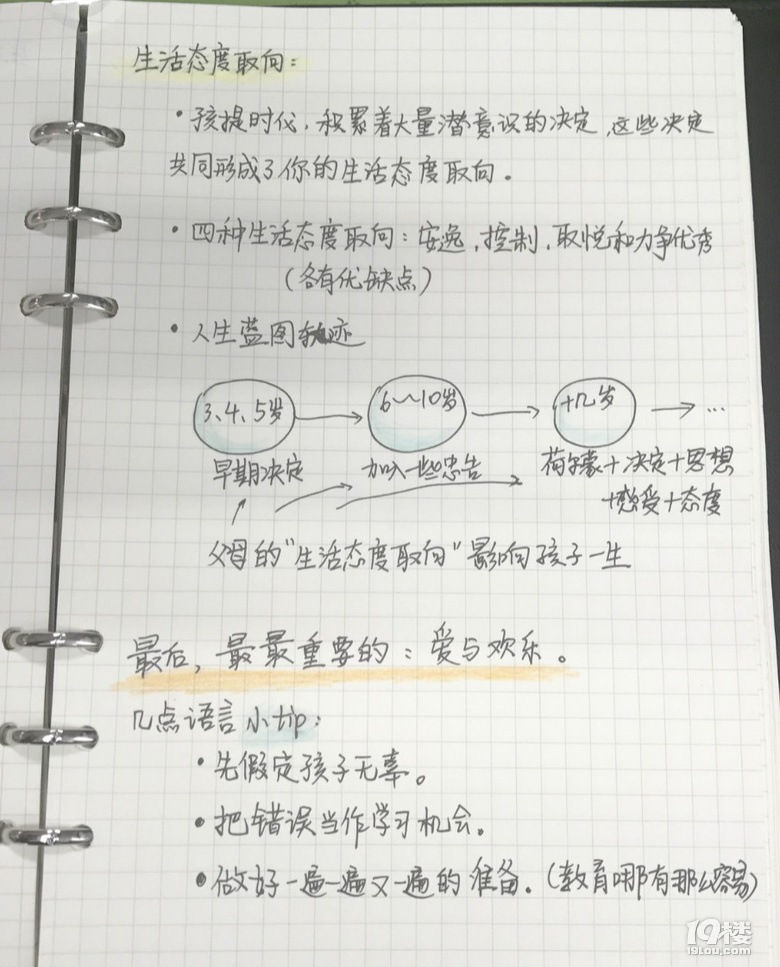 生活态度取向：
·孩提时代，积累着大量潜意识的决定，这些决定
共同形成了你的生活态度取向。
·四种生活态度取向：安逸，控制，取悦和力争优秀
（各有优缺点）
·人生蓝图轨迹
3、4、5岁 → 6~10岁 → 十几岁 → ...
早期决定 加入一些忠告 荷尔蒙+决定+思想
+感受+态度
父母的"生活态度取向"影响孩子一生
最后，最最重要的：爱与欢乐。
几点语言小tip：
·先假定孩子无辜。
·把错误当作学习机会。
·做好一遍一遍又一遍的准备。（教育哪有那么容易）
19楼
19lou.com